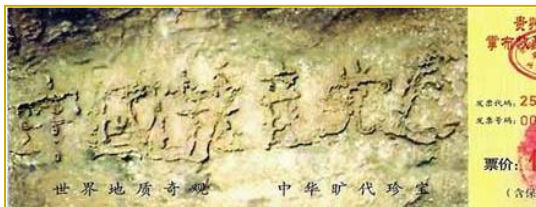 中國共産党亡
世界地质奇观 中华旷代珍宝
贵州
掌布
发票代码：25
发票号码：00
票价：
（含保